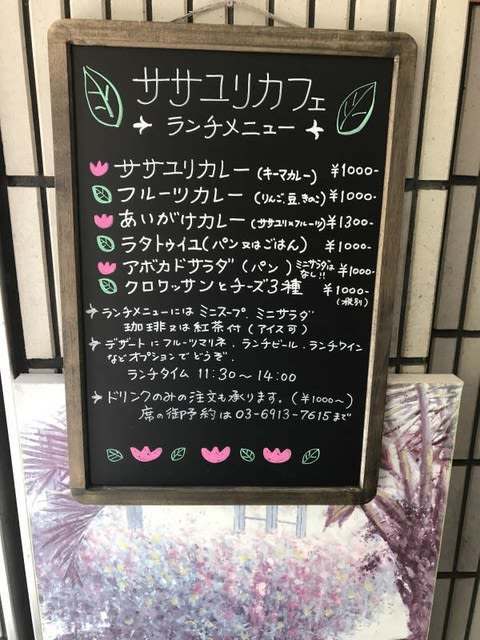 ササユリカフェ
ランチメニュー
ササユリカレー(キーマカレー) ¥1000-
フルーツカレー(りんご、豆、きのこ) ¥1000-
あいがけカレー(ササユリ×フルーツ) ¥1300-
ラタトゥイユ(パン又はごはん) ¥1000-
アボカドサラダ(パン)ミニサラダはなし!! ¥1000-
クロワッサンとチーズ3種 ¥1000-
(税別)
ランチメニューには ミニスープ、ミニサラダ
珈琲又は紅茶付(アイス可)
デザートにフルーツマリネ、ランチビール、ランチワイン
などオプションでどうぞ。
ランチタイム 11:30〜14:00
ドリンクのみの注文も承ります。(¥1000〜)
席の御予約は03-6913-7615まで